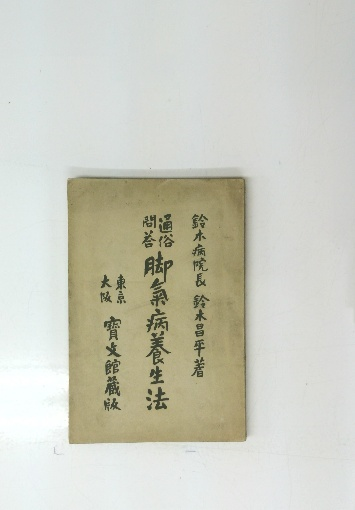 鈴木病院長 鈴木昌平著
通俗
問答
脚氣病養生法
東京
大阪
寶文館藏版